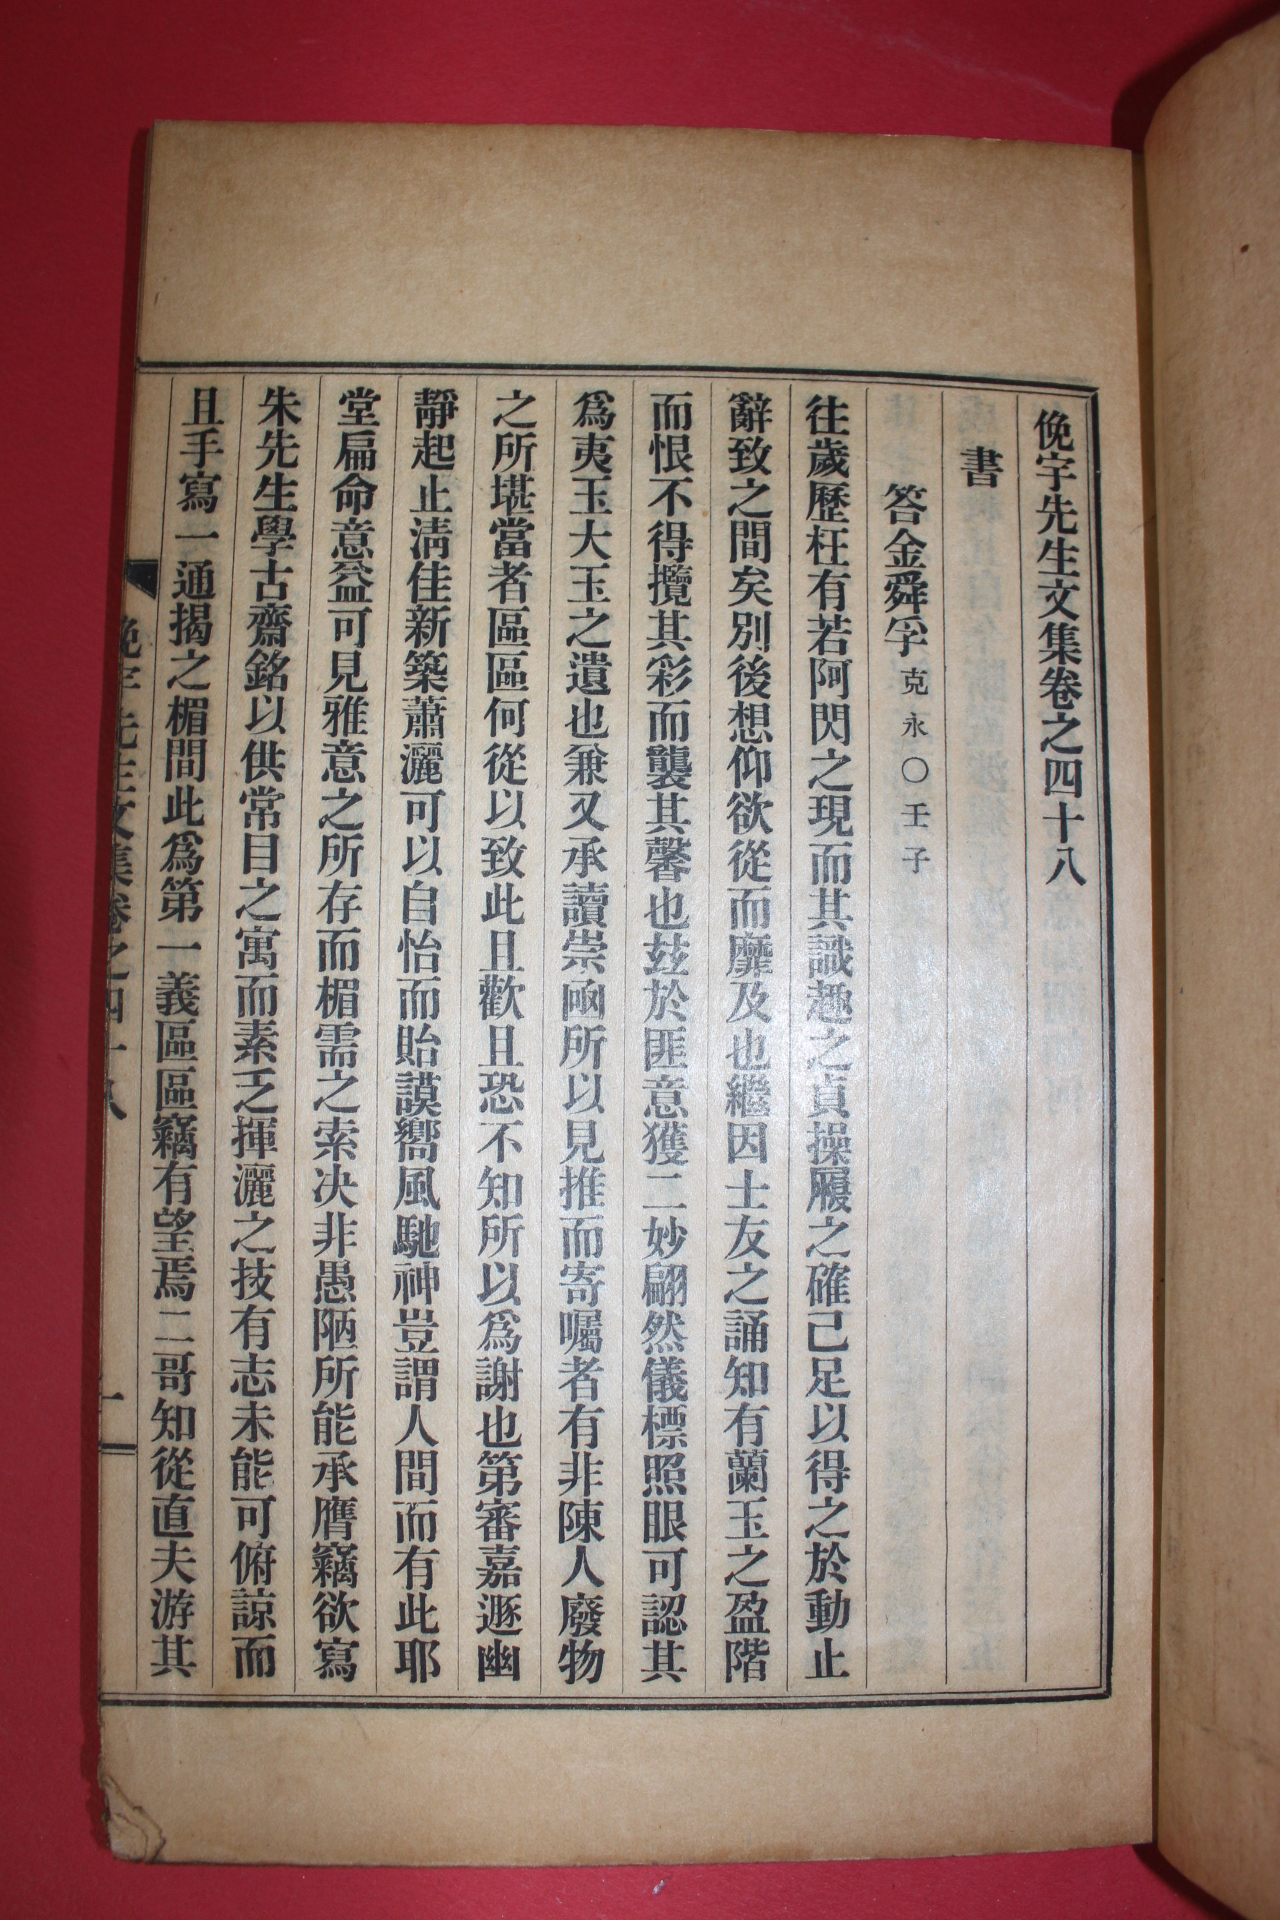 俛宇先生文集卷之四十八
書
答金舜孚 克永○壬子
往歲歷枉有若阿閃之現而其識趣之貞操履之確已足以得之於動止
辭致之間矣別後想仰欲從而靡及也繼因士友之誦知有蘭玉之盈階
而恨不得攬其彩而襲其馨也玆於匪意獲二妙翩然儀標照眼可認其
爲夷玉大玉之遺也兼又承讀崇凾所以見推而寄囑者有非陳人廢物
之所堪當者區區何從以致此且歡且恐不知所以爲謝也第審嘉遯幽
靜起止淸佳新築蕭灑可以自怡而貽謨嚮風馳神豈謂人間而有此耶
堂扁命意益可見雅意之所存而楣需之索决非愚陋所能承膺竊欲寫
朱先生學古齋銘以供常目之寓而素乏揮灑之技有志未能可俯諒而
且手寫一通揭之楣間此爲第一義區區竊有望焉二哥知從直夫游其
俛宇先生文集卷之四十八
一